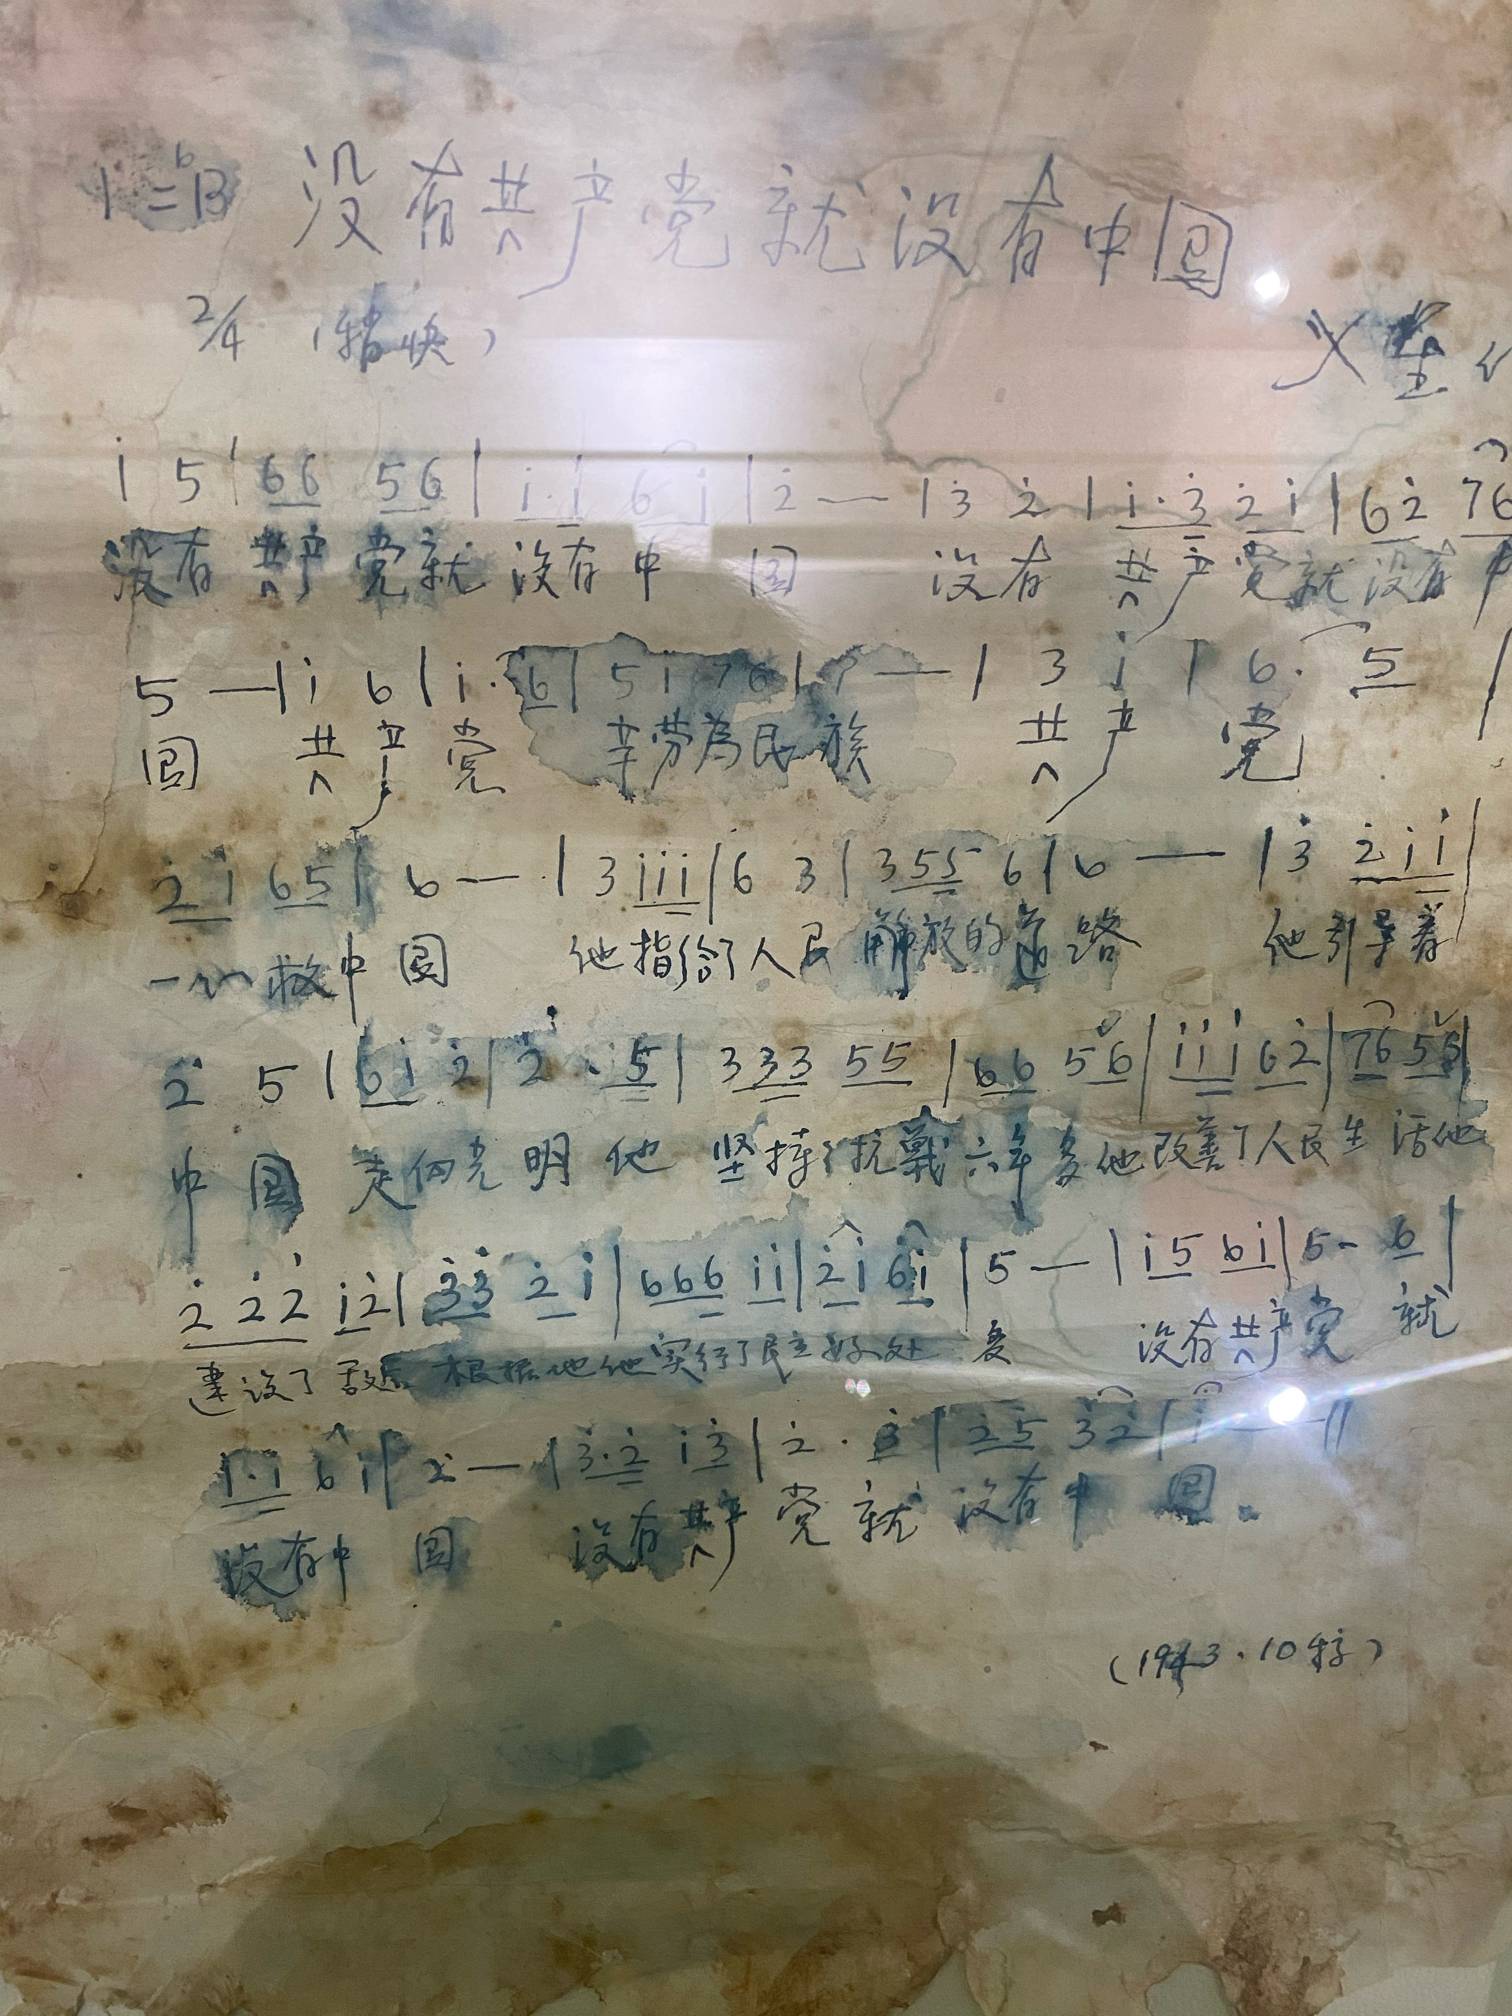 1=ᵇB 没有共产党就没有中国
2/4 (稍快)
义埜
i 5 | 66 56 | i·i 6i | 2̇ — | 3̇ 2̇ | i·3̇ 2̇i | 62̇ 76
没有共产党就没有中国 没有共产党就没有中
5 — | i 6 | i·6 | 5i 76 | — | 3 i | 6· 5 |
国 共产党 辛劳为民族 共产党
2̇i 65 | 6 — | 3iii | 6 3 | 355 6 | 6 — | 3̇ 2̇ii |
一心救中国 他指给了人民解放的道路 他引导着
2̇ 5 | 6i 2̇ | 2̇ · 5 | 333 55 | 66 56 | iii 62̇ | 76 55 |
中国走向光明他坚持了抗战六年多他改善了人民生活他
2̇2̇2̇ i2̇ | 3̇3̇ 2̇i | 666 ii | 2̇i 6i | 5 — | i5 6i | 5- 6 |
建设了敌后根据地他实行了民主好处多 没有共产党就
i·i 6i | 2̇ — | 3̇·2̇ i3̇ | 2̇ · 3̇ | 2̇5 3̇2̇ | i — ||
没有中国 没有共产党就没有中国。
(1943.10 )